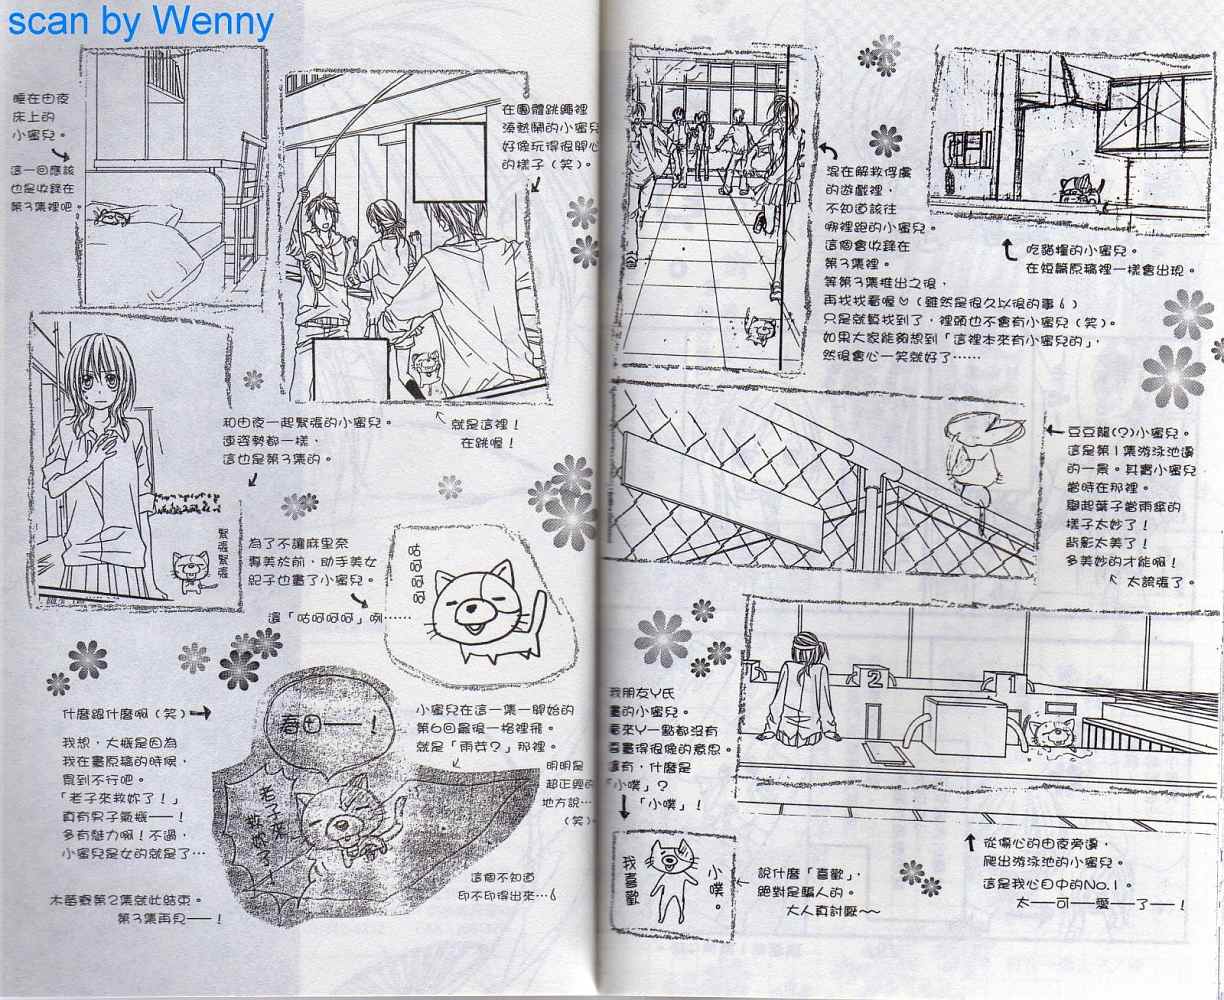 scan by Wenny
吃貓糧的小蜜兒。
在短篇原稿裡一樣會出現。
混在解救俘虜
的遊戲裡，
不知道該往
哪裡跑的小蜜兒。
這個會收錄在
第3集裡。
等第3集推出之後，
再找找看喔♡（雖然是很久以後的事6）
只是就算找到了，裡頭也不會有小蜜兒（笑）。
如果大家能夠想到「這裡本來有小蜜兒的」，
然後會心一笑就好了……
豆豆龍(?)小蜜兒。
這是第1集游泳池邊
的一景。其實小蜜兒
當時在那裡。
舉起葉子當雨傘的
樣子太妙了！
背影太美了！
多美妙的才能啊！
太誇張了。
2
1
從傷心的由夜旁邊，
爬出游泳池的小蜜兒。
這是我心目中的No.1。
太—可—愛—了—！
我朋友Y氏
畫的小蜜兒。
看來Y一點都沒有
要畫得很像的意思。
還有，什麼是
「小噗」？
「小噗」！
小噗。
我喜歡
說什麼「喜歡」，
絕對是騙人的。
大人真討厭~~
在團體跳繩裡
湊熱鬧的小蜜兒
好像玩得很開心
的樣子（笑）。
就是這裡！
在跳喔！
睡在由夜
床上的
小蜜兒。
這一回應該
也是收錄在
第3集裡吧。
和由夜一起緊張的小蜜兒。
連姿勢都一樣，
這也是第3集的。
緊張緊張
為了不讓麻里奈
專美於前，助手美女
紀子也畫了小蜜兒。
這「咕呵呵呵」咧……
咕呵呵呵
小蜜兒在這一集一開始的
第6回最後一格裡飛。
就是「雨芽？」那裡。
明明是
超正經的
地方說…
（笑）
春田——！
老子來
救妳了！
這個不知道
印不印得出來…6
什麼跟什麼啊（笑）
我想，大概是因為
我在畫原稿的時候，
累到不行吧。
「老子來救妳了！」
真有男子氣概——！
多有魅力啊！不過，
小蜜兒是女的就是了…
木莓寮第2集就此結束。
第3集再見——！